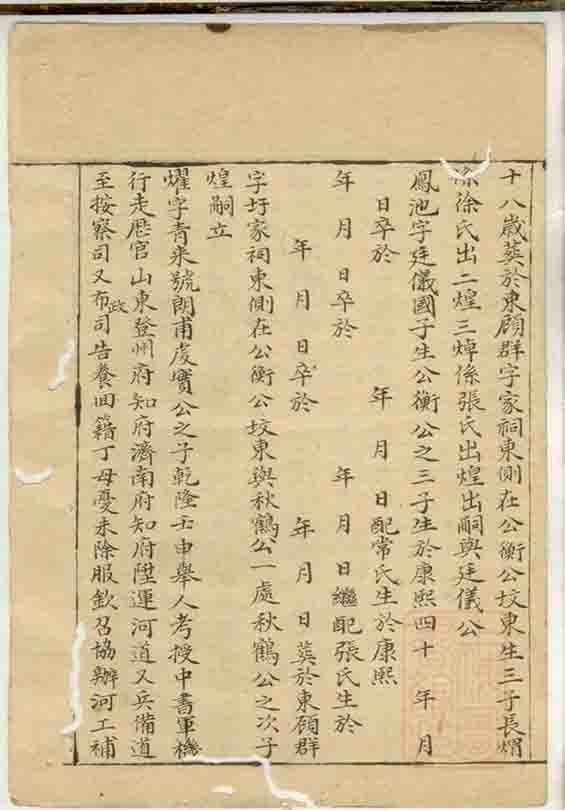 十八歲葬於東顧群字家祠東側在公衡公坟東生三子長熠
係徐氏出二煌三焯係張氏出煌出嗣與廷儀公
鳳池字廷儀國子生公衡公之三子生於康熙四十 年 月
日卒於 年 月 日配常氏生於康熙
年 月 日卒於 年 月 日繼配張氏生於
年 月 日卒於 年 月 日葬於東顧群
字圩家祠東側在公衡公坟東與秋鶴公一處秋鶴公之次子
煌嗣立
燿字青來號朗甫虔實公之子乾隆壬申舉人考授中書軍機
行走歷官山東登州府知府濟南府知府陞運河道又兵備道
至按察司又布政司告養回籍丁母憂未除服欽召協辦河工補